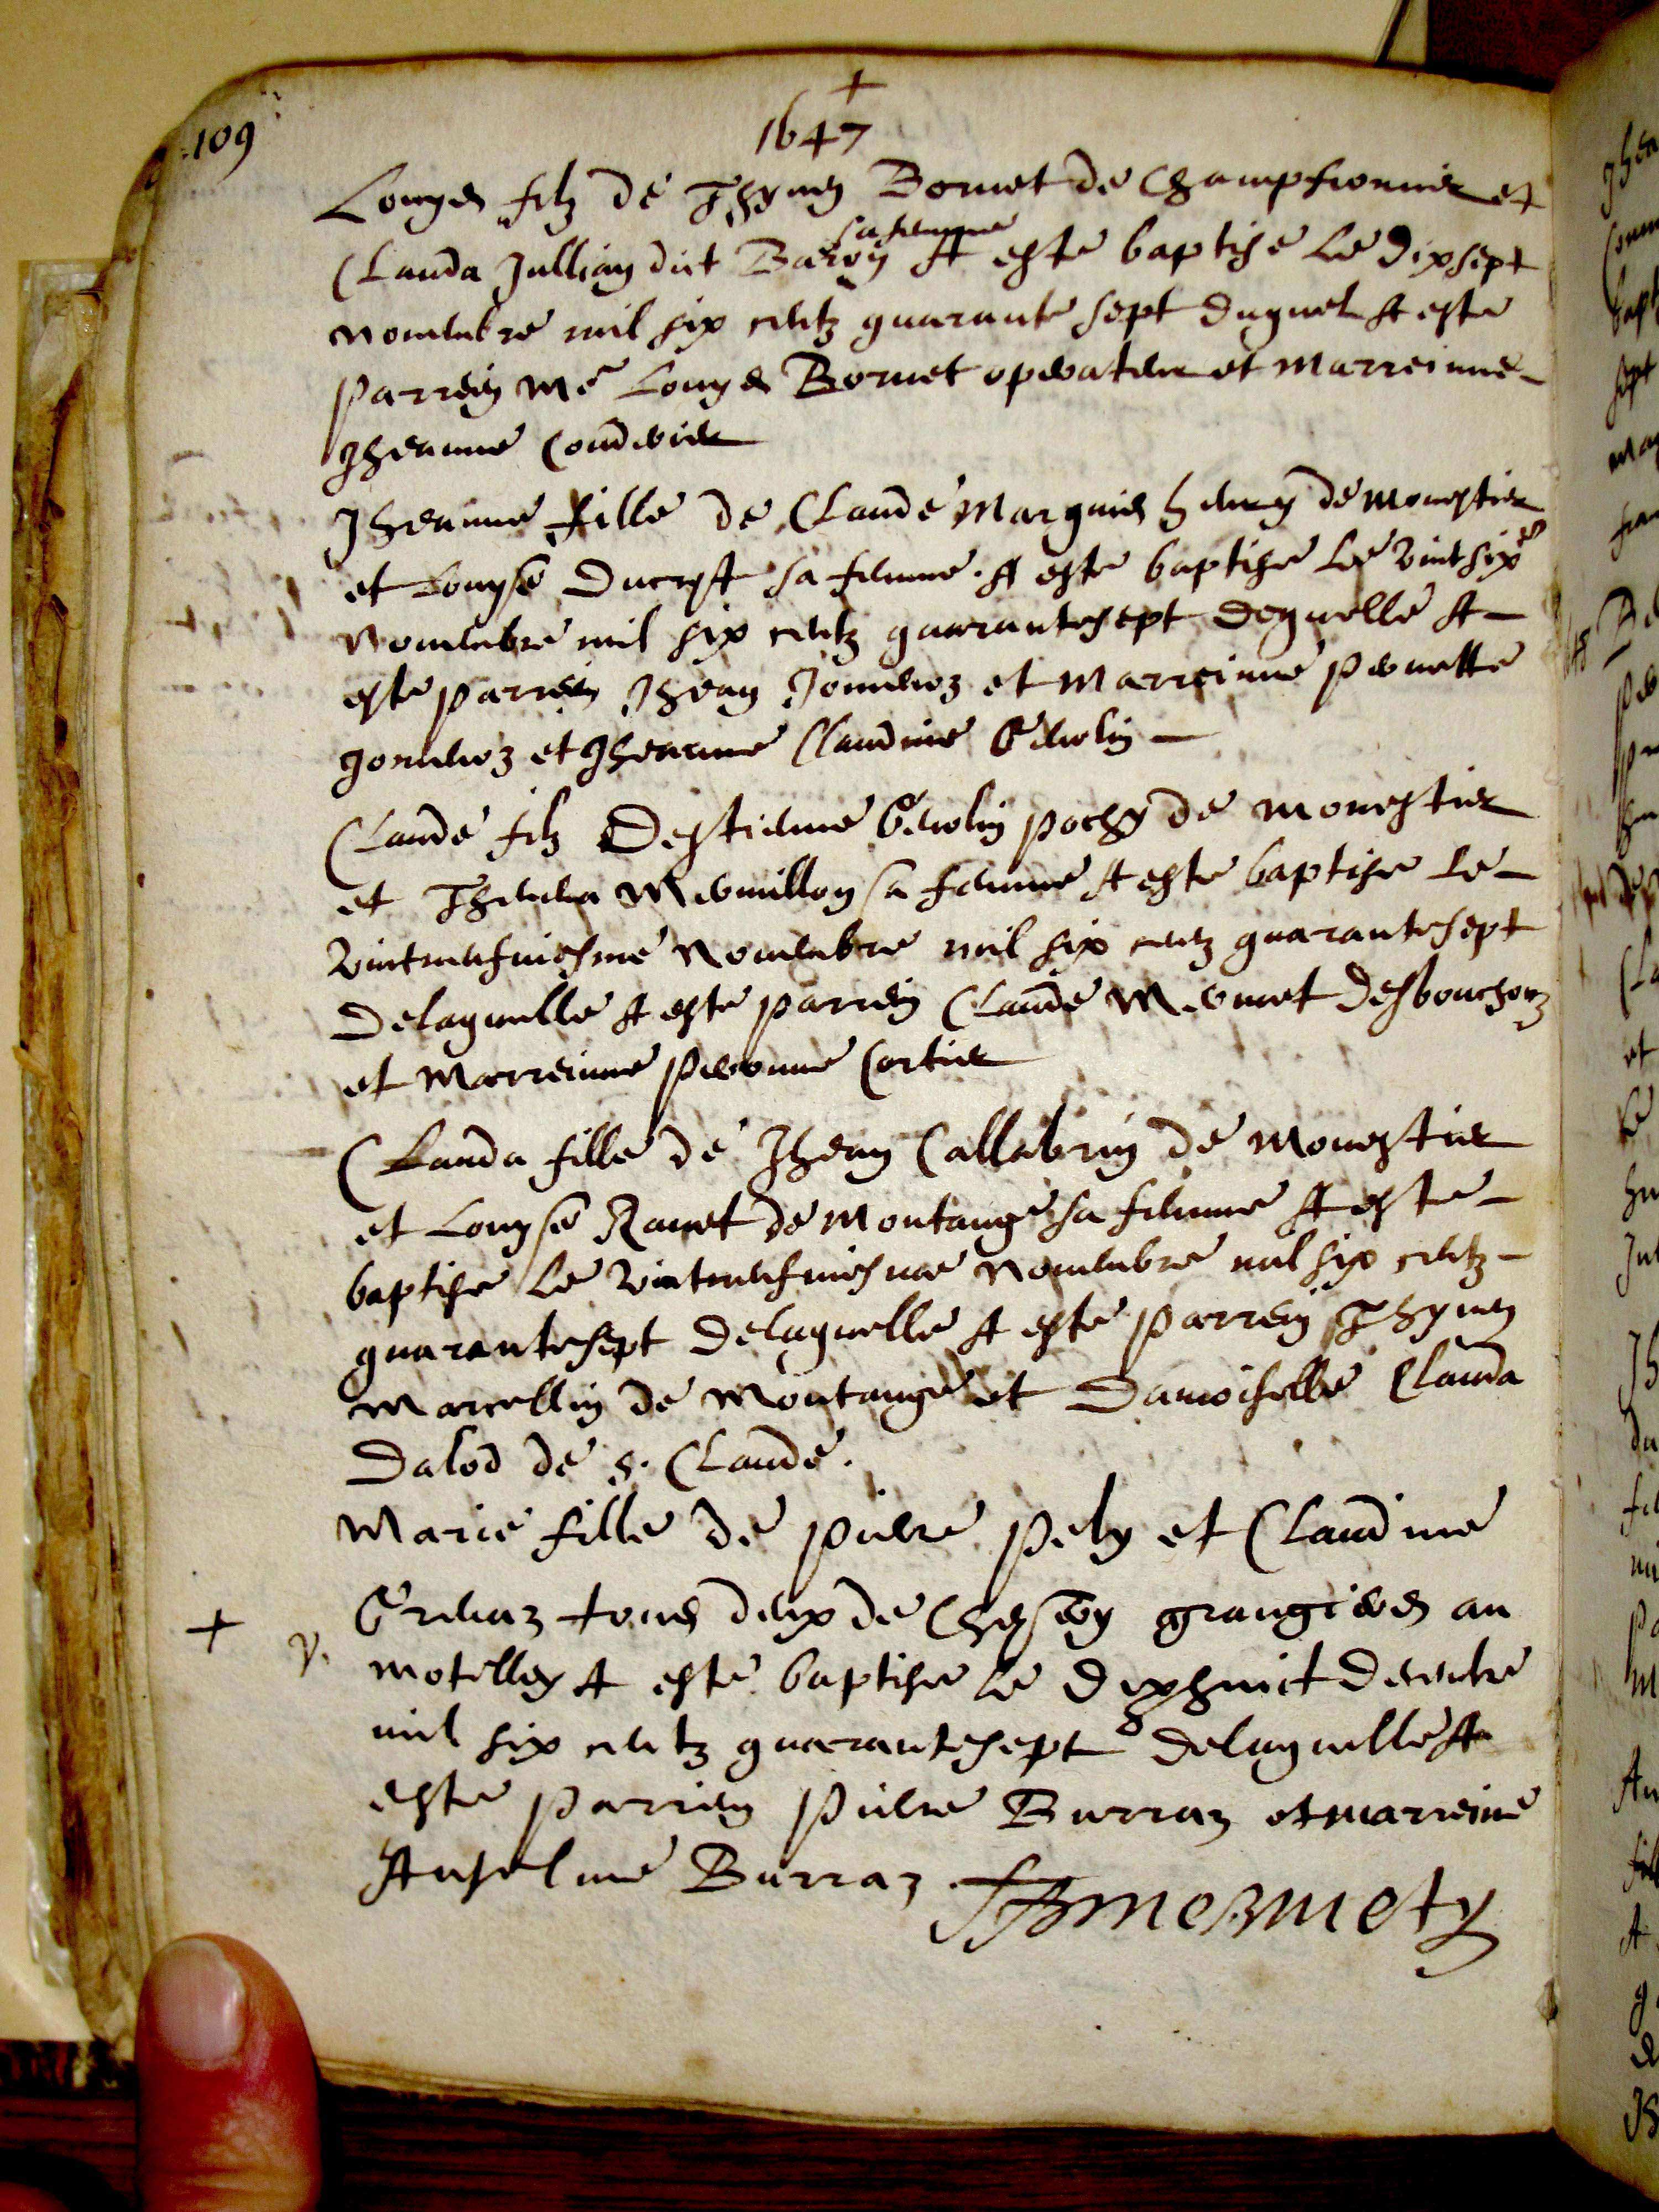 109
+
1647
Louys filz de Thyven Bornet de Champfromier et
sa femme
Clauda Jullian dict Baron A este baptise le dixsept
novembre mil six centz quarante sept duquel A este
parrein Me Louys Bornet operateur et marreinne
Jheanne Condevier
Jheanne fille de Claude Marquis henry de Monestier
et Louyse Ducrest sa femme A este baptise le vint sixe
novembre mil six centz quarantesept dequelle A
este parrein Jhean Jornenoz et marreinne pernette
Jornenoz et Jheanne Claudine Genolin
Claude filz Destienne Genolin pochy de monestier
et Thevena Mermillon sa femme A este baptise le
vintneufviesme novembre mil six centz quarantesept
Delaquelle A este parrein Claude Mermet desbouchoz
et marreinne peronne Cortier
Clauda fille de Jhean Callabrin de monestier
et Louyse Ravet de Montange sa femme A este
baptise le vintneufviesme novembre mil six centz
quarantesept delaquelle A este parrein Thyven
Marcellin de Montange et Damoiselle Clauda
Dalod de S. Claude.
Marie fille de pierre pely et Claudine
+
Grenaz tous deux de Chesery grangiers au
v.
motilley A este baptise le dixhuict decembre
mil six centz quarantesept delaquelle A
este parrein pierre Burraz et marreine
Anselme Burraz